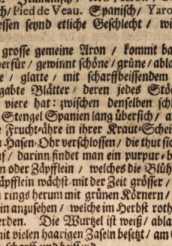 sch/Pied de Veau. Spanisch/ Yaro
essen seynd etliche Geschlecht / wi
grosse gemeine Aron / kommt ba
herfür / gewinnt schöne / grüne / abl
e / glatte / mit scharffbeissendem
gabte Blätter / deren jedes Stö
viere hat: zwischen denselben schl
Stengel Spannen lang übersich /
e Frucht-ähre in ihrer Kraut-Schei
Hasen-Ohr verschlossen / die thut sic
uf / darinn findet man ein purpur-
oder Zäpfflein / welches die Blüh
äpfflein wächst mit der Zeit grösser /
rings herum mit grünen Körnern /
ein anzusehen / welche im Herbst roth
erden. Die Wurtzel ist weiß / abla
mit vielen haarigen Zaseln besetzt / am